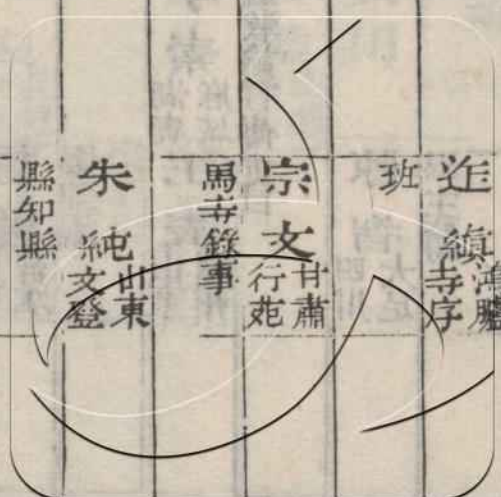 迮縝鴻臚
寺序
班
宗文甘肅
行苑
馬寺錄事
朱純山東
文登
縣知縣